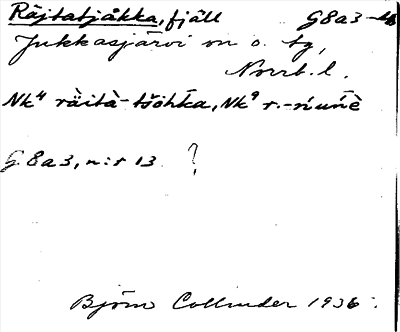 Räjtatjåkka, fjäll G8a3
Jukkasjärvi sn o. tg,
Norrb. l.
Nk⁴ räità-tšŏhka, Nk⁹ r.-ńuńè
G. 8a3, n:r 13 ?
Björn Collinder 1936.